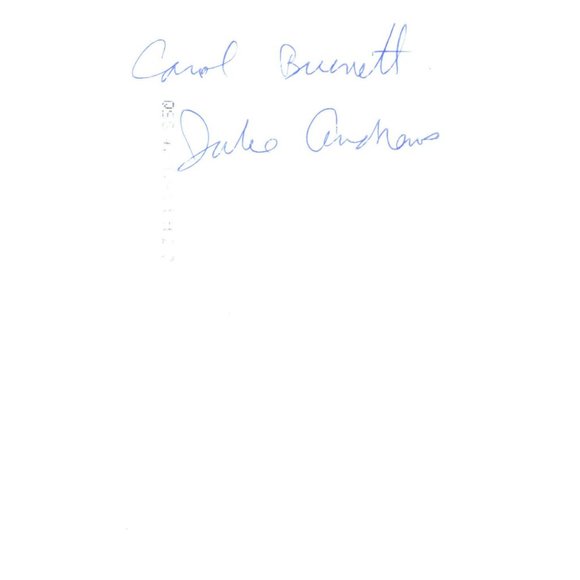 Carol Burnett
Julie Andrews